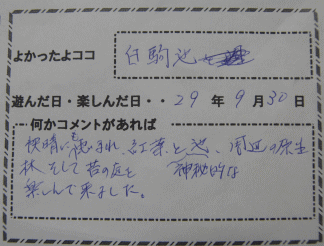 よかったよココ 白駒池
遊んだ日・楽しんだ日・・29年9月30日
何かコメントがあれば
快晴に恵まれ、紅葉と池、周辺の原生
林、そして神秘的な苔の庭を
楽しんで来ました。